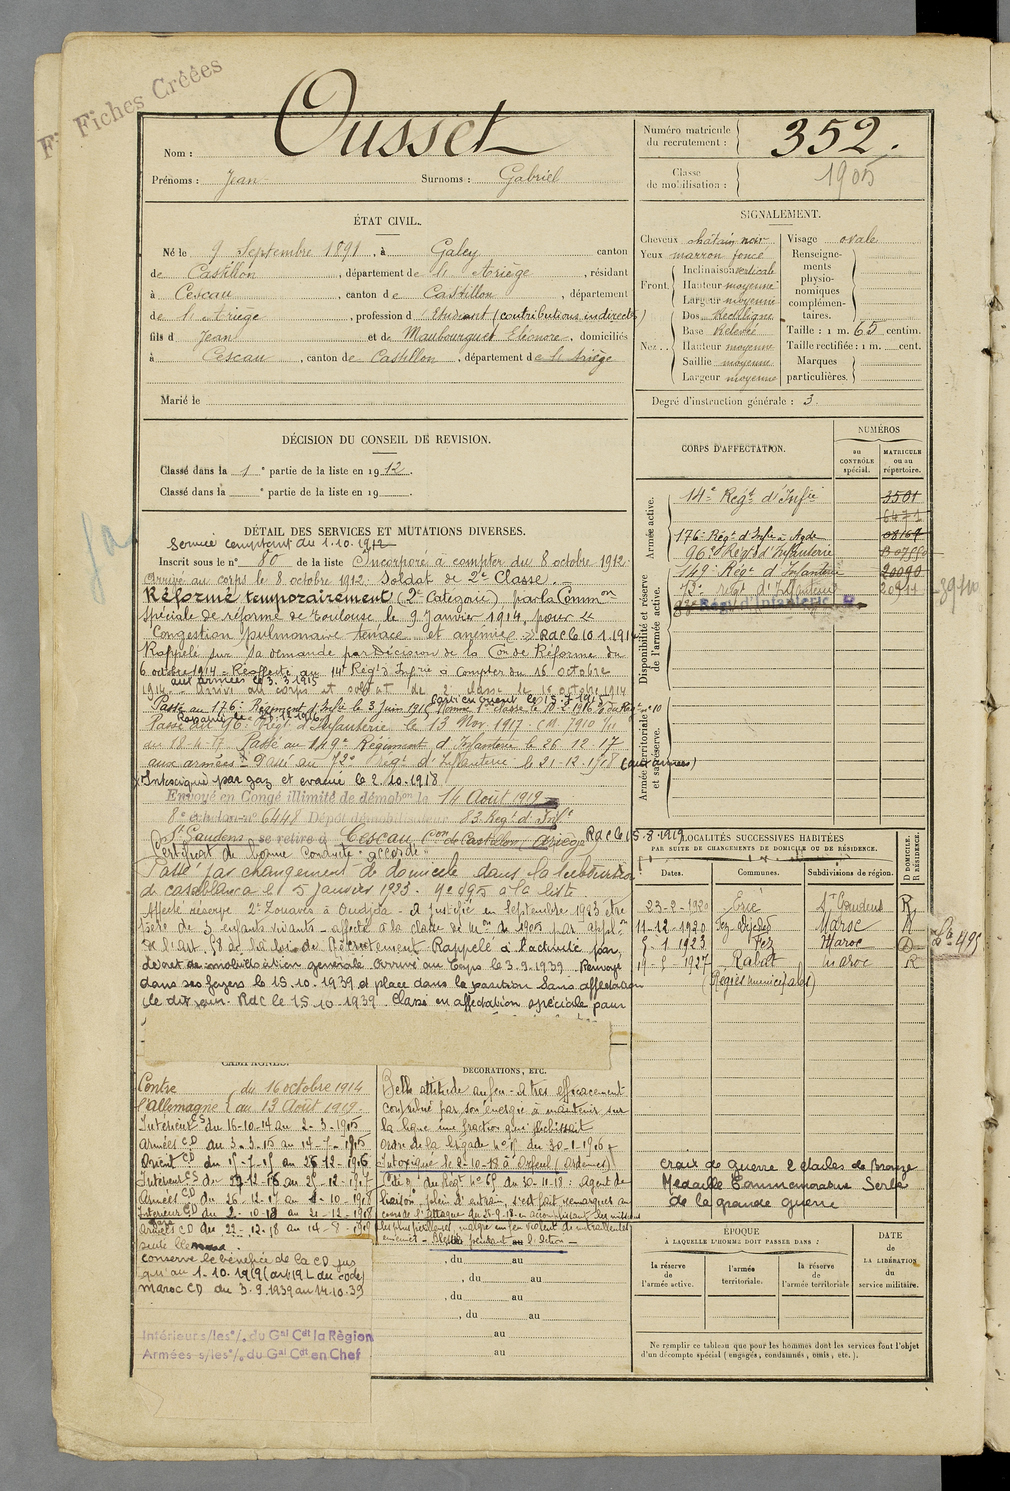 Fiches Créées
Nom : Ousset
Prénoms : Jean Surnoms : Gabriel
Numéro matricule du recrutement : 352.
Classe de mobilisation : 1905
ÉTAT CIVIL.
Né le 9 Septembre 1891, à Galey canton
de Castillon, département de l'Ariège, résidant
à Cescau, canton de Castillon, département
de l'Ariège, profession d'Etudiant (contributions indirectes)
fils d Jean et de Maubourguet Eléonore, domiciliés
à Cescau, canton de Castillon, département de l'Ariège
Marié le
SIGNALEMENT.
Cheveux châtain noir
Yeux marron foncé
Front. Inclinaison verticale
Hauteur moyenne
Largeur moyenne
Nez. Dos Rectiligne
Base Relevée
Hauteur moyenne
Saillie moyenne
Largeur moyenne
Visage ovale
Renseignements physionomiques complémentaires.
Taille : 1 m. 65 centim.
Taille rectifiée : 1 m. cent.
Marques particulières.
Degré d'instruction générale : 3.
DÉCISION DU CONSEIL DE REVISION.
Classé dans la 1e partie de la liste en 1912.
Classé dans la e partie de la liste en 19 .
CORPS D'AFFECTATION.
NUMÉROS
au CONTRÔLE spécial.
MATRICULE ou au répertoire.
Armée active.
Disponibilité et réserve de l'armée active.
Armée territoriale et sa réserve.
14e Regt d'Infie 3501
6471
176e Regt d'Infie à Agde
96e Regt d'Infanterie
149e Regt d'Infanterie 20090
72e regt d'Infanterie 20911
DÉTAIL DES SERVICES ET MUTATIONS DIVERSES.
Service comptant du 1.10.1912
Inscrit sous le n° 80 de la liste Incorporé à compter du 8 octobre 1912.
Arrivé au corps le 8 octobre 1912. Soldat de 2e Classe.
Réformé temporairement (2e Catégorie) par la Common
spéciale de réforme de Toulouse le 9 Janvier 1914, pour
Congestion pulmonaire tenace et anémie RdC le 10.1.1914
Rappelé sur sa demande par Décision de la Con de Réforme du
6 octobre 1914 - Réaffecté au 14e Régt d'Infie à compter du 16 octobre
aux armées le 3.3.1915
1914. Arrivé au corps et soldat de 2e classe le 16 octobre 1914
Parti en orient le 15-7-1915
Passé au 176e Régiment d'Infie le 3 Juin 1915 Nommé 1e classe le 10-2-1916
Passé au 96e Régt d'Infanterie le 13 Nov. 1917.
du 18-4-17 Passé au 149e Régiment d'Infanterie le 26-12-17
aux armées Passé au 72e regt d'Infanterie le 21-12-1918 (aux armées)
Intoxiqué par gaz et évacué le 2.10.1918
Envoyé en Congé illimité de démobon le 14 Août 1919
8e échelon n° 6448 Dépôt démobilisateur 83e Régt d'Infie
St Gaudens, se retire à Cescau, Con de Castillon, Ariège RdC le 15.8.1919
Certificat de bonne conduite "accordé"
Passé par changement de domicile dans la subdivision
de casablanca le 5 Janvier 1923. n° 495 à la liste
Affecté réserve 2e Zouaves à Oudjda - A justifié en Septembre 1923 être
père de 3 enfants vivants - affecté à la classe de mon de 1905 par applon
de l'art. 58 de la loi de Recrutement. Rappelé à l'activité par
décret de mobilisation générale. Arrivé au Corps le 3.9.1939. Renvoyé
dans ses foyers le 15.10.1939 et placé dans la position Sans affectation
le dit jour. RdC le 15.10.1939. Classé en affectation spéciale pour
LOCALITÉS SUCCESSIVES HABITÉES
PAR SUITE DE CHANGEMENTS DE DOMICILE OU DE RÉSIDENCE.
Dates. Communes. Subdivisions de région. D DOMICILE. R RÉSIDENCE.
23-2-1920 St Gaudens R
11-12-1920 Fez djedid Maroc R
5-1 1923 Fez Maroc D
19-5-1927 Rabat Maroc R
(Régies municipales)
CAMPAGNES.
Contre l'Allemagne du 16 octobre 1914
au 13 Août 1919.
Intérieur CS du 16-10-14 au 2-3-1915
Armées CD du 3-3-15 au 14-7-1915
Orient CD du 15-7-15 au 26-12-1916
Intérieur CS du 27-12-16 au 25-12-1917
Armées CD du 26-12-17 au 1-10-1918
Intérieur CD du 2-10-18 au 21-12-1918
Armées CD du 22-12-18 au 14-8-1919
conserve le bénéfice de la CD jus
qu'au 1-10-1919 (art 19 L du code)
Maroc CD du 3.9.1939 au 14.10.39
Intérieur s/les o/ du Gal Cdt la Région
Armées s/les o/ du Gal Cdt en Chef
DÉCORATIONS, ETC.
Belle attitude au feu - a très efficacement
contribué par son énergie à maintenir sur
la ligne une fraction qui fléchissait
ordre de la brigade n° 15 du 30-1-1916
Intoxiqué le 2-10-18 à Orfeuil (Ardennes)
Cité o/ du Régt n° 65 du 30-11-18 : Agent de
liaison, plein d'entrain, s'est fait remarquer au
cours de l'attaque du 26-9-18 en accomplissant les missions
les plus périlleuses, malgré un feu violent de mitrailleuses
ennemies - Blessé pendant l'action -
, du au
, du au
, du au
, du au
au
au
Croix de guerre 2 étoiles de Bronze
Médaille Commémorative Serbe
de la grande guerre
ÉPOQUE
À LAQUELLE L'HOMME DOIT PASSER DANS :
la réserve de l'armée active.
l'armée territoriale.
la réserve de l'armée territoriale
DATE de LA LIBÉRATION du service militaire.
Ne remplir ce tableau que pour les hommes dont les services font l'objet
d'un décompte spécial (engagés, condamnés, omis, etc.).